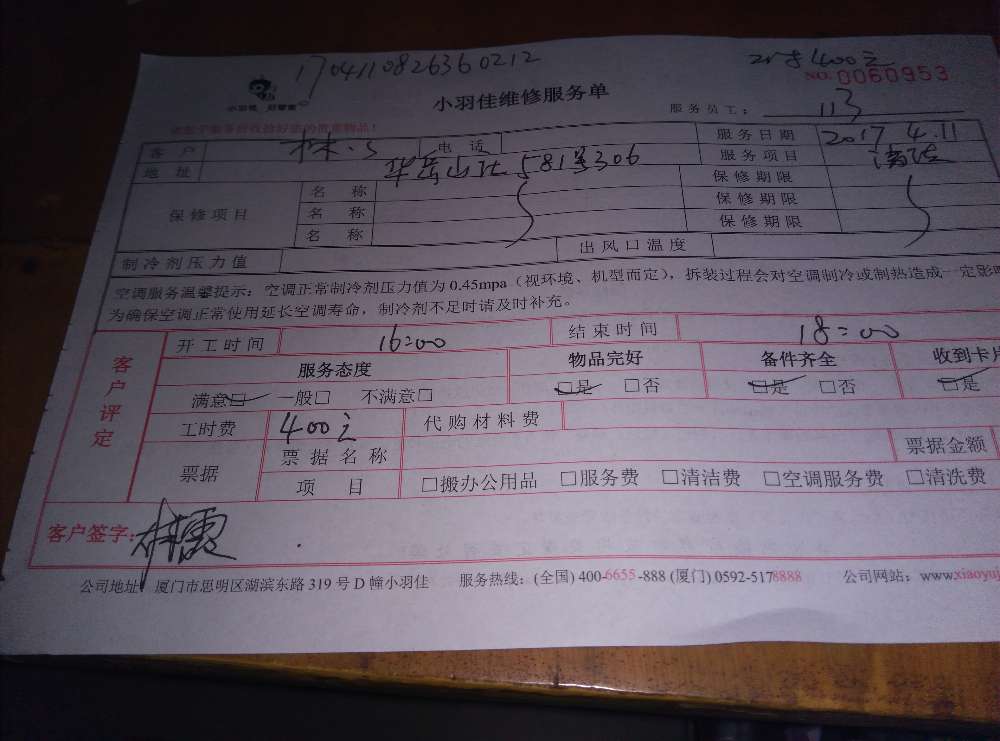 170411082636 0212
400元
NO.0060953
小羽佳 好管家
小羽佳维修服务单
服务员工: 113
客 户 林.S 电 话 服务日期 2017 4.11
地 址 华岳山庄581号306 服务项目 清洁
保修项目 名 称 保修期限
名 称 保修期限
名 称 保修期限
制冷剂压力值 出风口温度
空调服务温馨提示:空调正常制冷剂压力值为 0.45mpa(视环境、机型而定),拆装过程会对空调制冷或制热造成一定影
为确保空调正常使用延长空调寿命,制冷剂不足时请及时补充。
客户评定 开工时间 16=00 结束时间 18=00
服务态度 物品完好 备件齐全 收到卡片
满意☑ 一般□ 不满意□ ☑是 □否 ☑是 □否 ☑是
工时费 400元 代购材料费
票据 票据名称 票据金额
项 目 □搬办公用品 □服务费 □清洁费 □空调服务费 □清洗费
客户签字:
公司地址: 厦门市思明区湖滨东路 319 号 D 幢小羽佳 服务热线:(全国) 400-6655-888 (厦门) 0592-5178888 公司网站:www.xiaoyuj